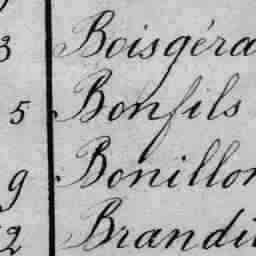 3 Boisgéra
5 Bonfils
9 Bonillon
2 Brandi